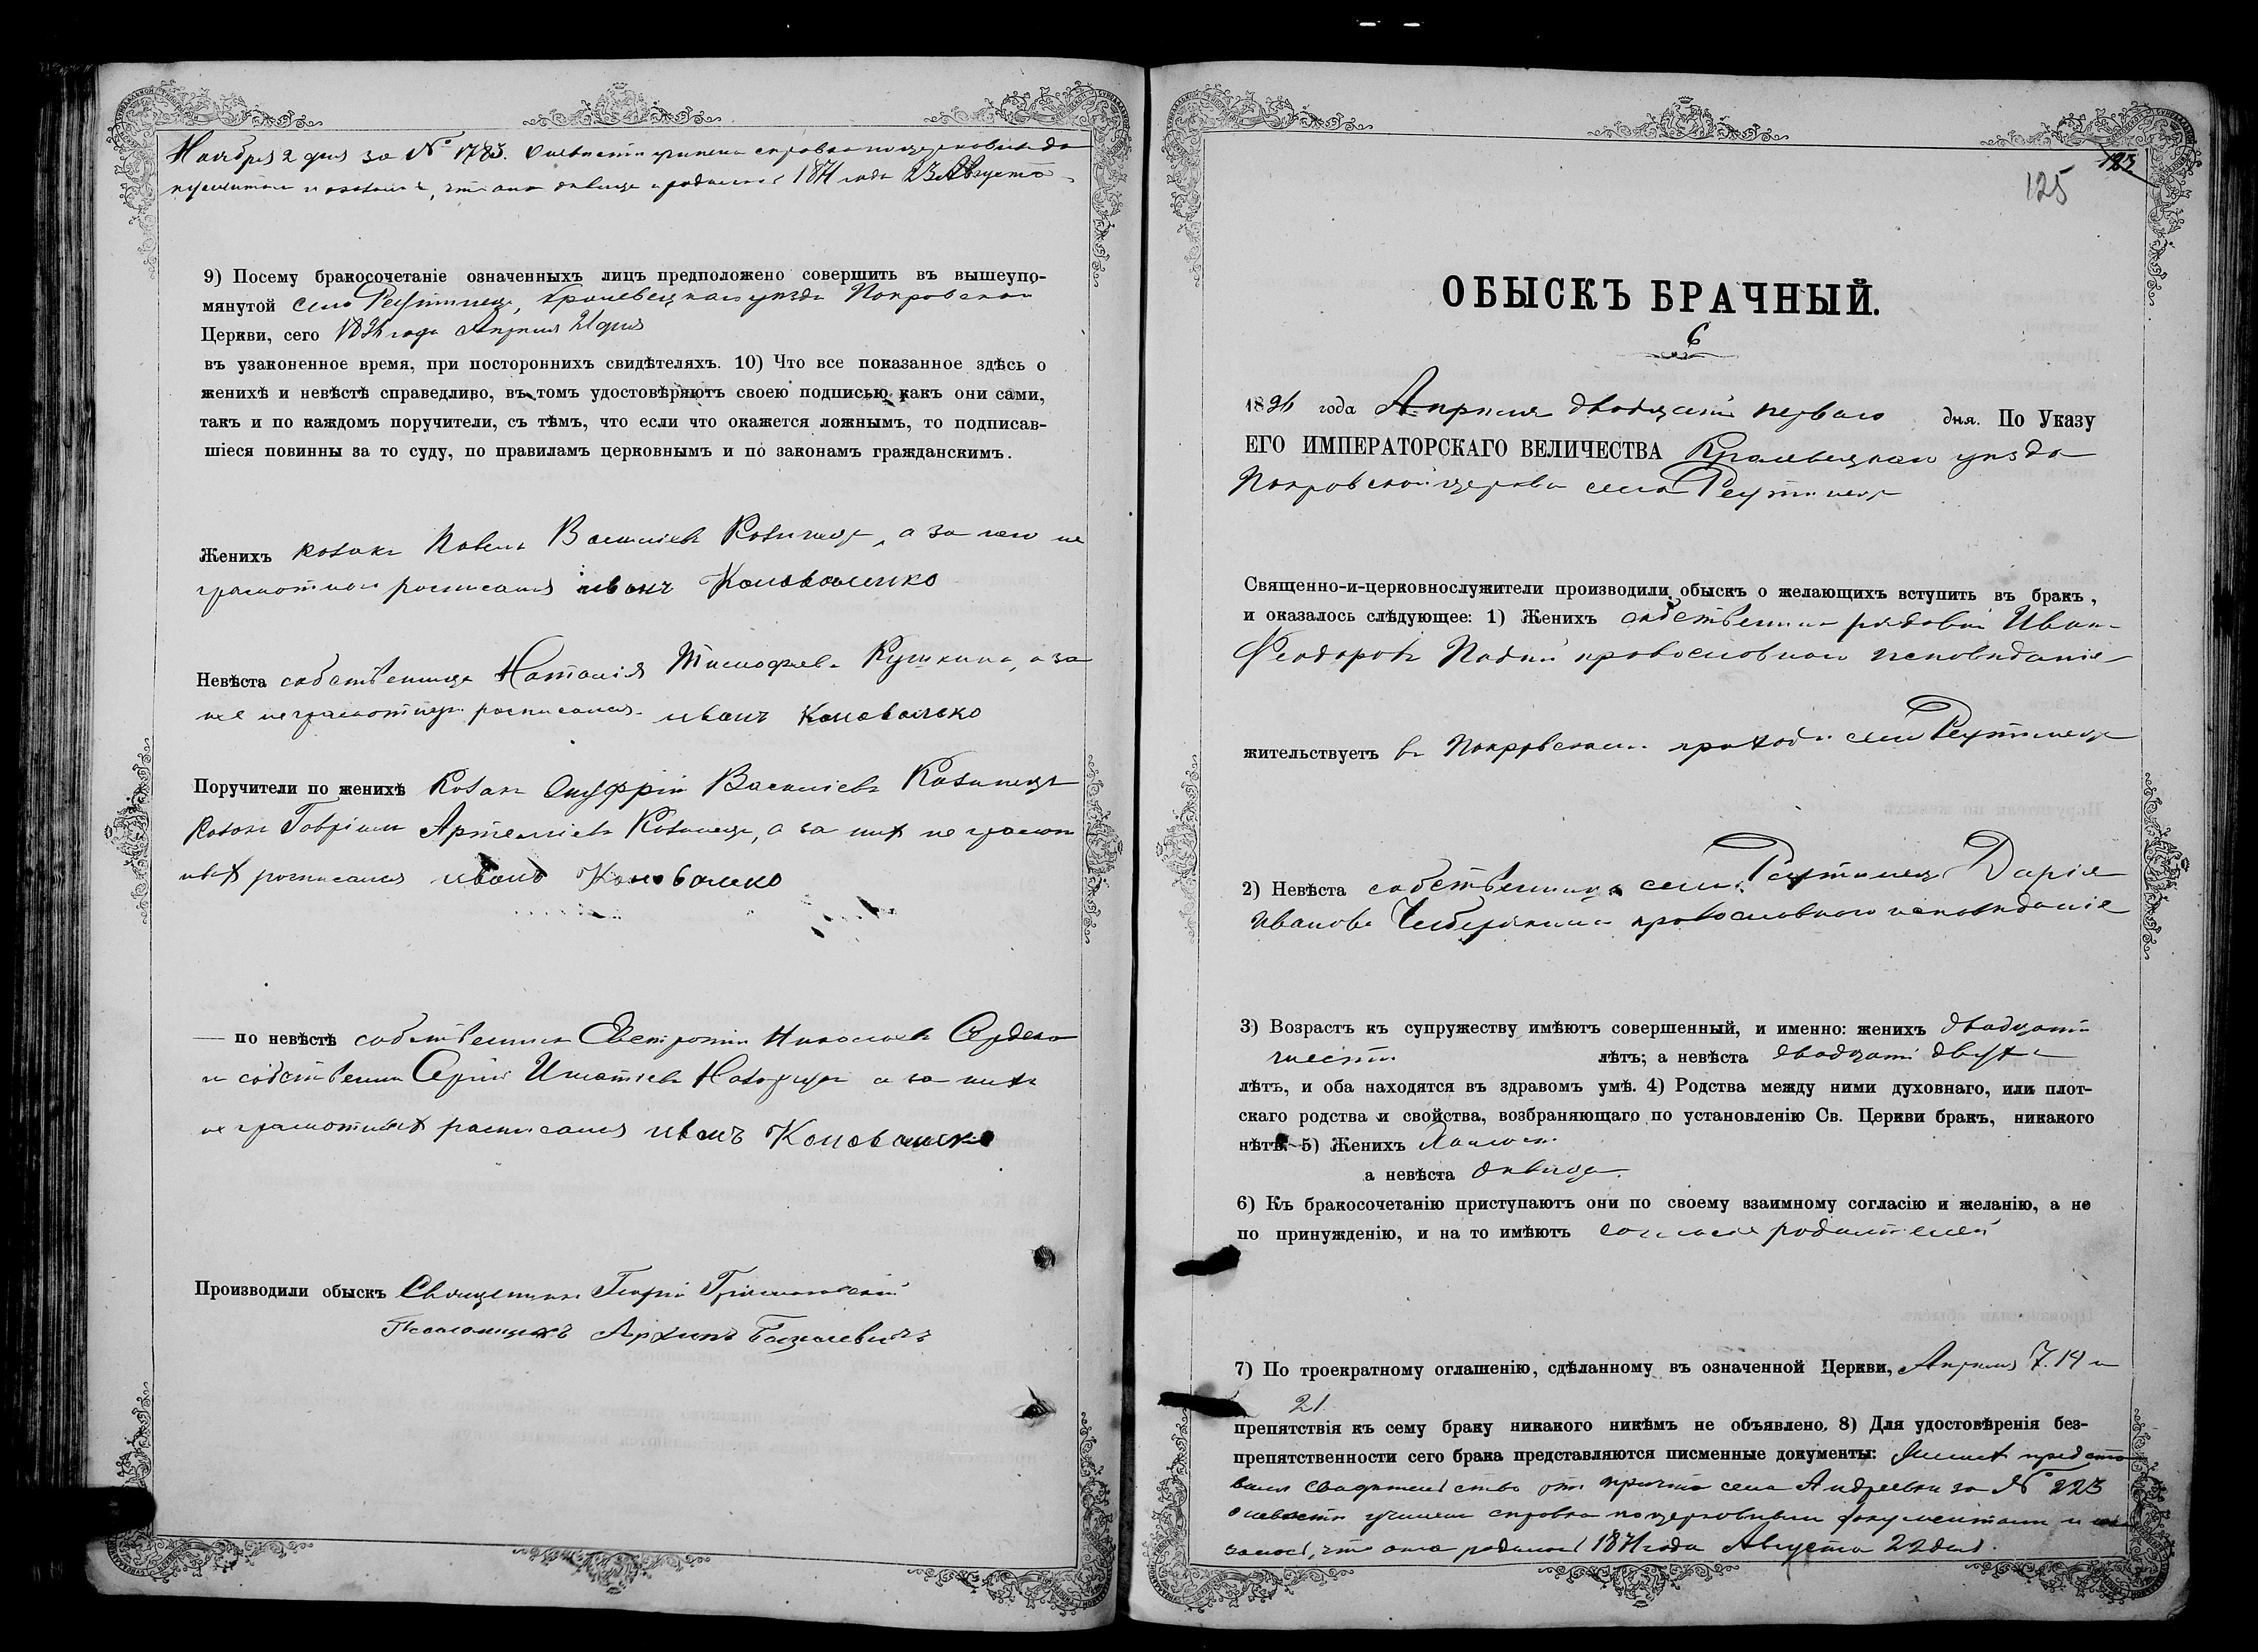 Ноября 2 дня за № 1783. О невестѣ учинена справка по церковнымъ до
кументамъ и оказалось, что она дѣвица и родилась 1874 года 23 Августа
9) Посему бракосочетаніе означенныхъ лицъ предположено совершить въ вышеупо-
мянутой села Реутинецъ, Кролевецкаго уѣзда Покровской
Церкви, сего 1896 года Апрѣля 21 дня
въ узаконенное время, при постороннихъ свидѣтеляхъ. 10) Что все показанное здѣсь о
женихѣ и невѣстѣ справедливо, въ томъ удостовѣряютъ своею подписью какъ они сами,
такъ и по каждомъ поручители, съ тѣмъ, что если что окажется ложнымъ, то подписав-
шіеся повинны за то суду, по правиламъ церковнымъ и по законамъ гражданскимъ.
Женихъ козакъ Павелъ Василіевъ Козинецъ, а за него не
грамотнаго росписался иванъ Коноваленко
Невѣста собственница Наталія Тимофѣева Кушкина, а за
нее неграмотную росписался иванъ Коновалеко
Поручители по женихѣ Козакъ Онуфрій Василіевъ Козинецъ
козакъ Гавріилъ Артеміевъ Козинецъ, а за нихъ не грамот
ныхъ росписался иванъ Коновалеко
— по невѣстѣ собственникъ Евстратій Николаевъ Сердека
и собственникъ Сергій Игнатіевъ а за нихъ
не грамотныхъ росписался иванъ Коновалеко
Производили обыскъ Священникъ Георгій
Псаломщикъ Архипъ Базилевичъ
123
125
ОБЫСКЪ БРАЧНЫЙ.
6
1896 года Апрѣля двадцать перваго дня. По Указу
ЕГО ИМПЕРАТОРСКАГО ВЕЛИЧЕСТВА Кролевецкаго уѣзда
Покровской церкви села Реутинецъ
Священно-и-церковнослужители производили обыскъ о желающихъ вступить въ бракъ,
и оказалось слѣдующее: 1) Женихъ собственникъ рядовой Иванъ
Феодоровъ православнаго исповѣданія
жительствуетъ въ Покровскомъ приходѣ села Реутинецъ
2) Невѣста собственница села Реутинецъ Дарія
Иванова православнаго исповѣданія
3) Возрастъ къ супружеству имѣютъ совершенный, и именно: женихъ двадцати
шести лѣтъ; а невѣста двадцати двухъ
лѣтъ, и оба находятся въ здравомъ умѣ. 4) Родства между ними духовнаго, или плот-
скаго родства и свойства, возбраняющаго по установленію Св. Церкви бракъ, никакого
нѣтъ. 5) Женихъ холостъ
а невѣста дѣвица.
6) Къ бракосочетанію приступаютъ они по своему взаимному согласію и желанію, а не
по принужденію, и на то имѣютъ согласіе родителей
7) По троекратному оглашенію, сдѣланному въ означенной Церкви, Апрѣля 7. 14 и
21
препятствія къ сему браку никакого никѣмъ не объявлено. 8) Для удостовѣренія без-
препятственности сего брака представляются писменные документы: Женихъ предста
вилъ свидѣтельство отъ причта села Андреевки за № 223
о невѣстѣ учинена справка по церковнымъ документамъ и ока
залось, что она родилась 1874 года Августа 22 дня.